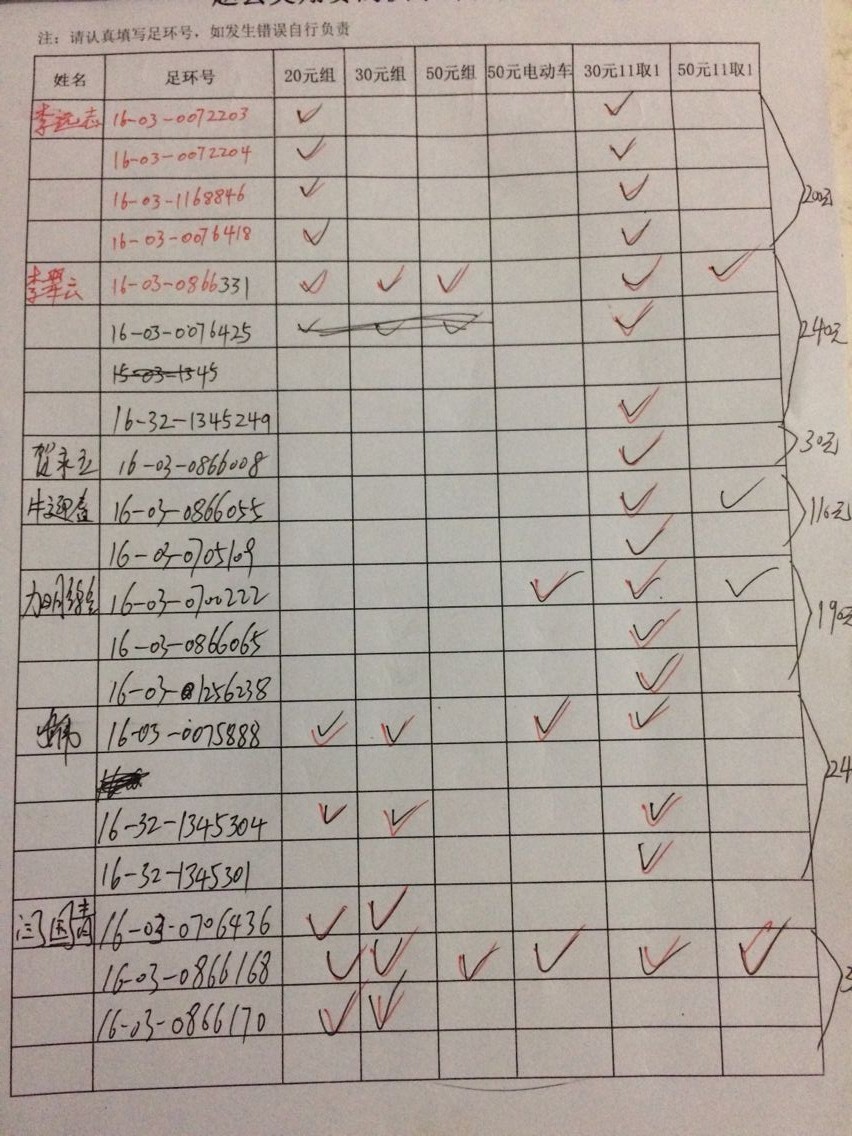 注：请认真填写足环号，如发生错误自行负责
姓名 足环号 20元组 30元组 50元组 50元电动车 30元11取1 50元11取1
李远志 16-03-0072203 ✓ ✓
16-03-0072204 ✓ ✓
16-03-1168846 ✓ ✓
16-03-0076418 ✓ ✓
200元
李翠云 16-03-0866331 ✓ ✓ ✓ ✓ ✓
16-03-0076425 ✓ ✓ ✓ ✓
15-03-1345
16-32-1345249 ✓
240元
贺来玉 16-03-0866008 ✓
30元
16-03-0866055 ✓ ✓
16-03-0705109 ✓
110元
16-03-0700222 ✓ ✓ ✓
16-03-0866065 ✓
16-03-1256238 ✓
190元
16-03-0075888 ✓ ✓ ✓ ✓
16-32-1345304 ✓ ✓ ✓
16-32-1345301 ✓
24
闫国青 16-03-0706436 ✓ ✓
16-03-0866168 ✓ ✓ ✓ ✓ ✓ ✓
16-03-0866170 ✓ ✓
3